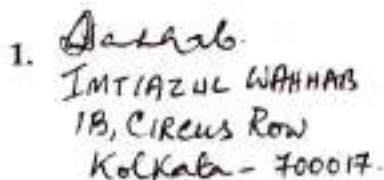 1. Wahhab
IMTIAZUL WAHHAB
1B, CIRCUS ROW
Kolkata - 700017.